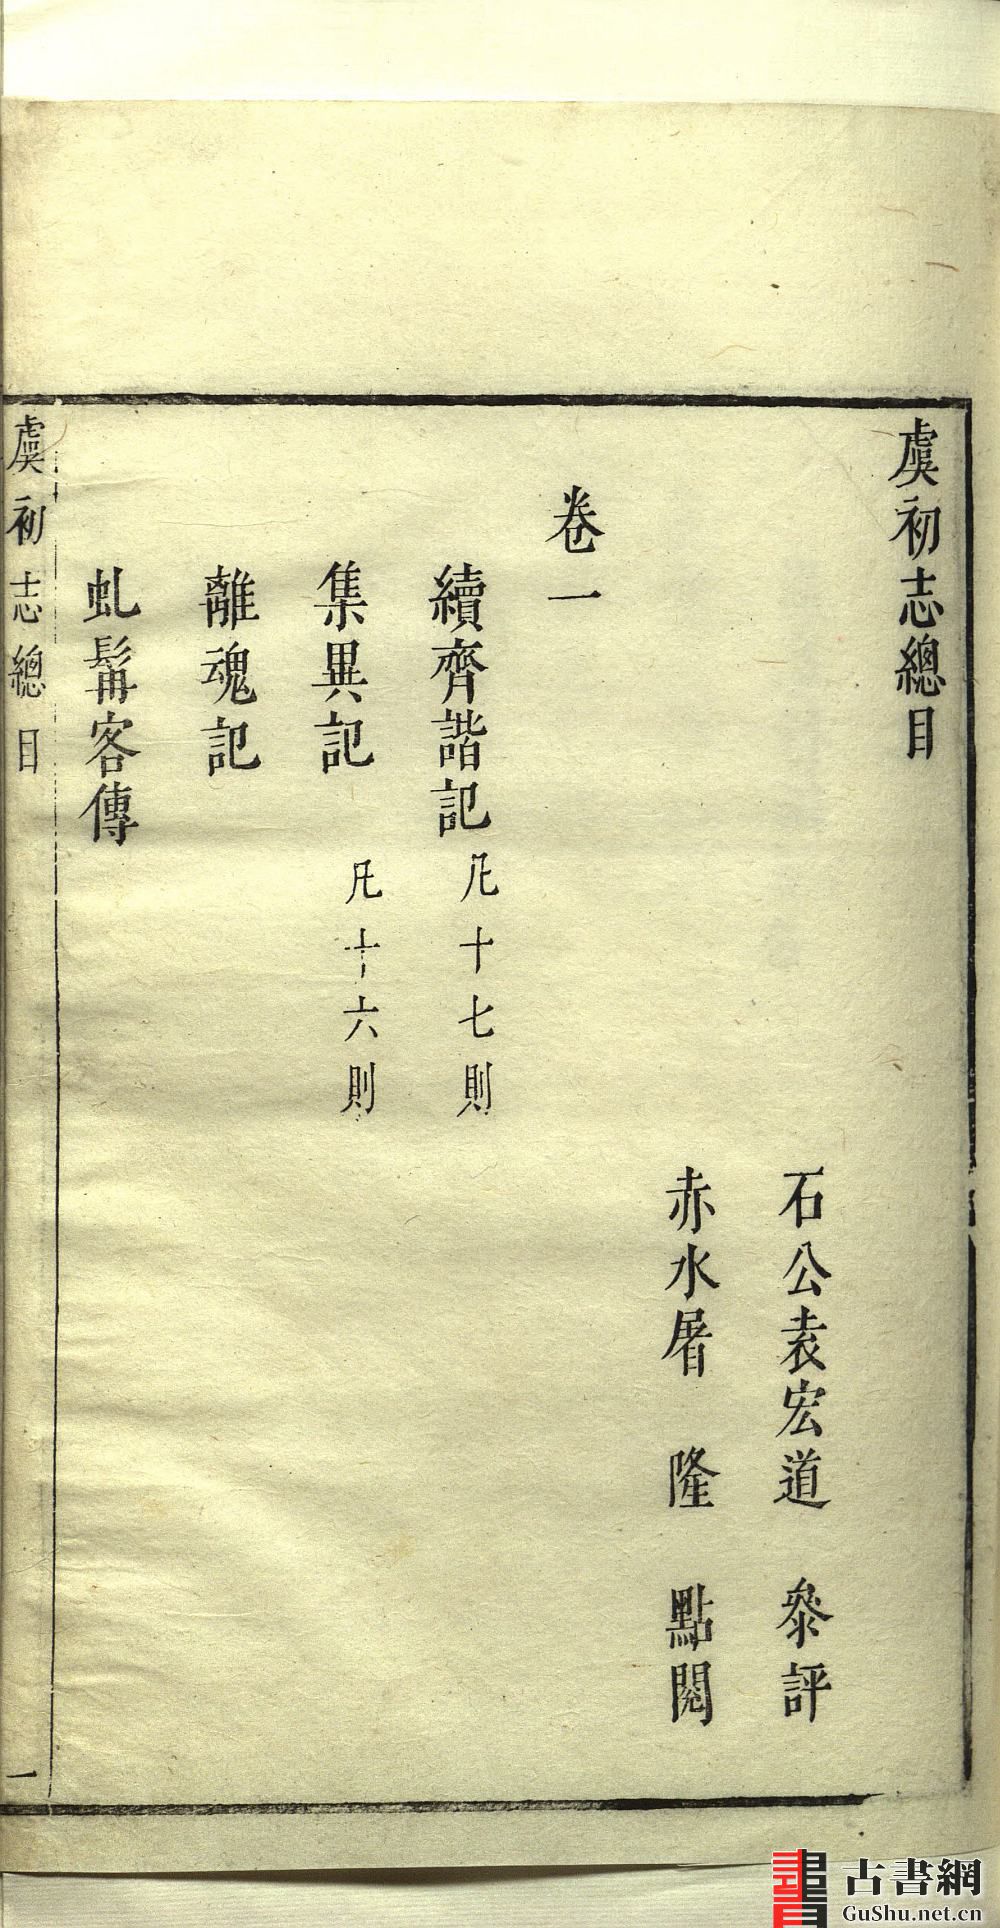 虞初志總目
石公袁宏道 參評
赤水屠 隆 點閱
卷一
續齊諧記 凡十七則
集異記 凡十六則
離魂記
虬髯客傳
虞初志總目 一
古書網
GuShu.net.cn